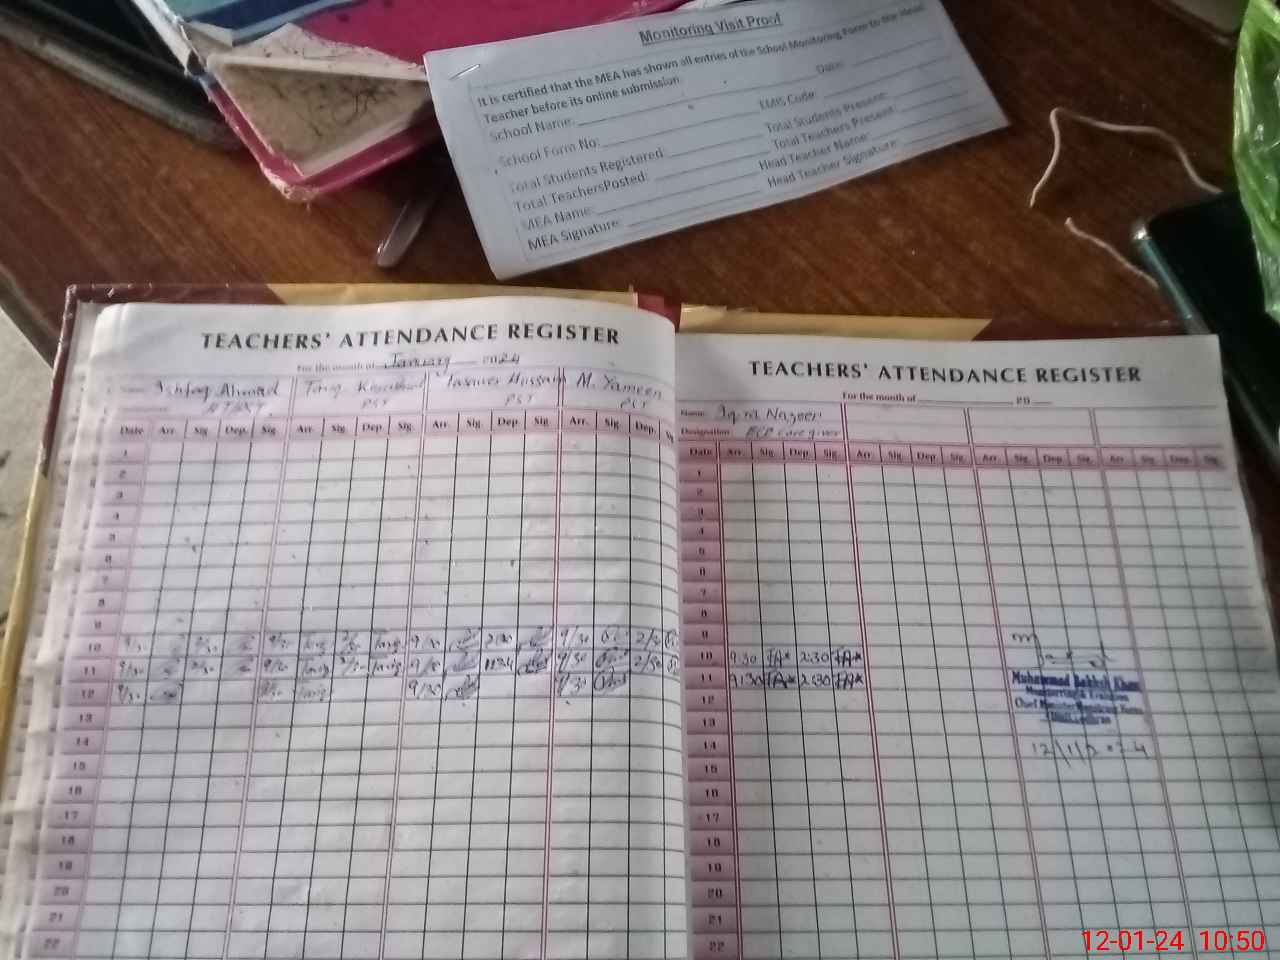 Monitoring Visit Proof
It is certified that the MEA has shown all entries of the School Monitoring Form to the Head
Teacher before its online submission.
Date:
School Name:
EMIS Code:
School Form No:
Total Students Present:
Total Students Registered:
Total Teachers Present:
Total TeachersPosted:
Head Teacher Name:
MEA Name:
Head Teacher Signature:
MEA Signature:
TEACHERS' ATTENDANCE REGISTER
For the month of January 2024
Name: Ishfaq Ahmad Tariq Tasawer Hussain M. Yameen
PST PST PST
Date Arr. Sig. Dep. Sig. Arr. Sig. Dep. Sig. Arr. Sig. Dep. Sig. Arr. Sig. Dep.
1
2
3
4
5
6
7
8
9
10 9/30 9/30 2:30 9/30 2/30
11 9/30 2/30 9/30 9/30 2/30
12 9/30 9/30 9/30
13
14
15
16
17
18
19
20
21
22
TEACHERS' ATTENDANCE REGISTER
For the month of 20
Name: Iqra Nazeer
Designation ECE care giver
Date Arr. Sig. Dep. Sig. Arr. Sig. Dep. Sig. Arr. Sig. Dep. Sig. Arr. Sig. Dep. Sig.
1
2
3
4
5
6
7
8
9
10 9:30 2:30
11 9:30 2:30
12
13
14
15
16
17
18
19
20
21
22
Muhammad Bakhsh Khan
Monitoring & Evaluation
12/1/2024
12-01-24 10:50